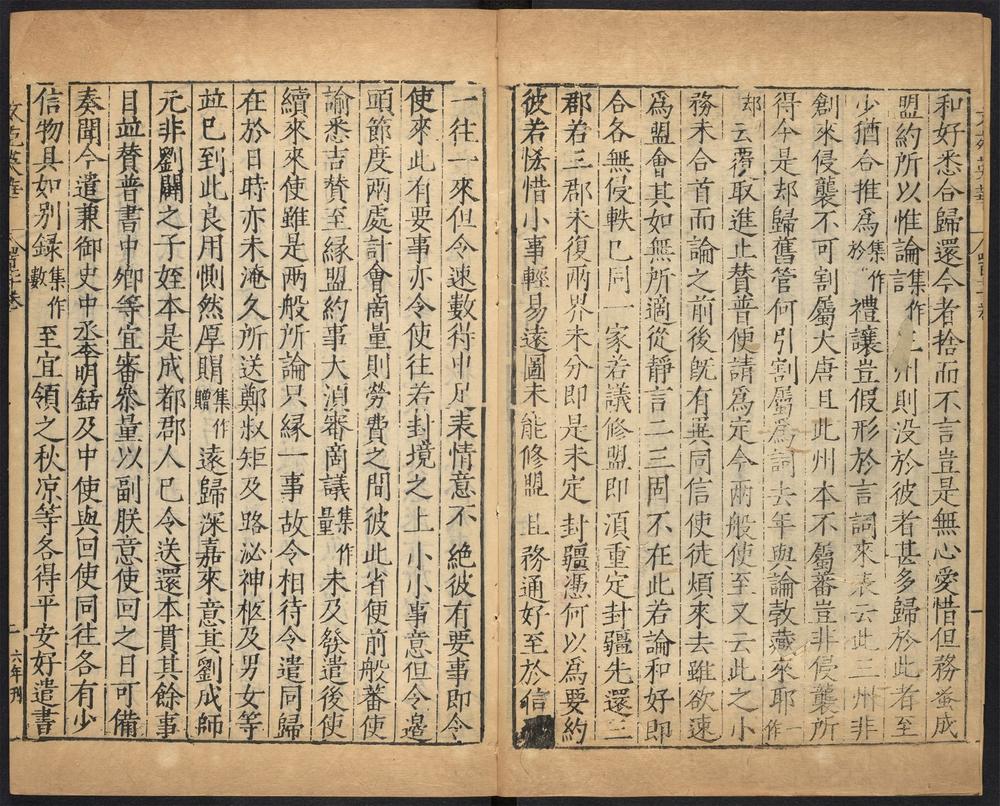 和好悉合歸還今者捨而不言豈是無心愛惜但務蚤成
盟約所以惟論詞集作三州則没於彼者甚多歸於此者至
少猶合推為集作於禮讓豈假形於言詞來表云此三州非
創來侵襲不可割屬大唐且此州本不屬蕃豈非侵襲所
得今是却歸舊管何引割屬為詞去年與論敦藏來耶一作
却云覆取進止贊普便請為定今兩般使至又云此之小
務未合首而論之前後既有異同信使徒煩來去雖欲速
為盟會其如無所適從靜言二三固不在此若論和好即
合各無侵軼已同一家若議修盟即湏重定封疆先還三
郡若三郡未復兩界未分即是未定封疆憑何以為要約
彼若恡惜小事輕易遠圖未能修盟且務通好至於信
一往一來但令速數得中足表情意不絶彼有要事即令
使來此有要事亦令使往若封境之上小小事意但令邊
頭節度兩處計會啇量則勞費之間彼此省便前般蕃使
諭悉吉贊至緣盟約事大湏審啇議集作量未及發遣後使
續來來使雖是兩般所論只緣一事故令相待令遣同歸
在於日時亦未淹久所送鄭叔矩及路泌神柩及男女等
竝已到此良用惻然厚賵集作贈遠歸深嘉來意其劉成師
元非劉闢之子姪本是成都郡人已令送還本貫其餘事
目竝贊普書中卿等宜審叅量以副朕意使回之日可備
奏聞今遣兼御史中丞李明銛及中使與回使同往各有少
信物具如别録集作數至宜領之秋凉等各得平安好遣書
文苑英華
六年刋